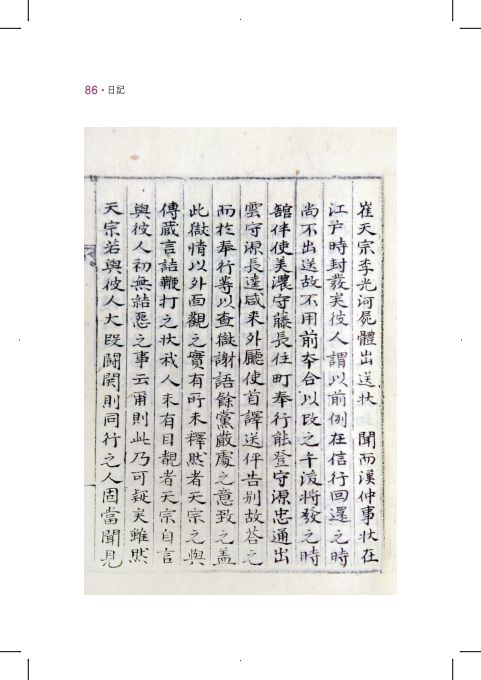 86・日記
崔天宗李光河屍體出送狀 聞而漢仲事狀在
江户時封發矣彼人謂以前例在信行回還之時
尚不出送故不用前夲合以改之午後將發之時
舘伴使美濃守藤長住町奉行能登守源忠通出
雲守源長逹咸来外廳使首譯送伻告别故荅之
而於奉行等以查獄謝語餘黨嚴䖏之意致之盖
此獄情以外面觀之實有所未釋然者天宗之與
傳蔵言詰鞭打之狀我人未有目覩者天宗自言
與彼人初無結惡之事云甫則此乃可疑矣雖然
天宗若與彼人大段鬪鬨則同行之人固當聞見